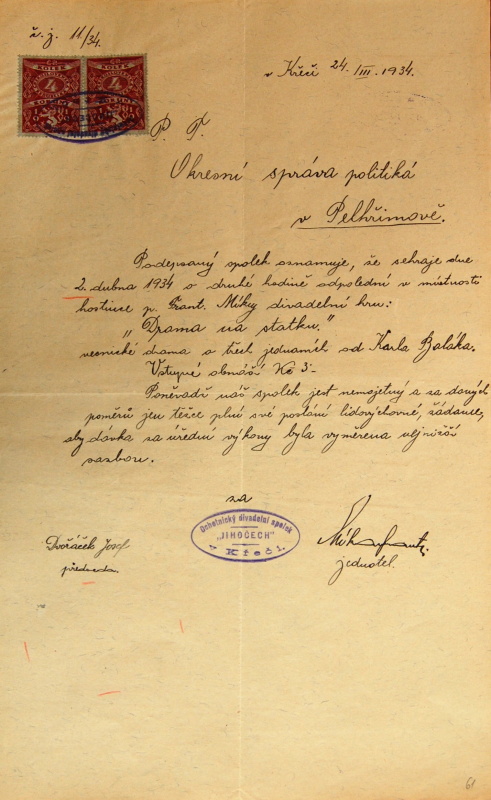 č. j. 11/34.
v Křči 24. III. 1934.
ČS
KOLEK
4
ČS
KOLEK
4
P. T.
Okresní správa politiká
v Pelhřimově.
Podepsaný spolek oznamuje, že sehraje dne
2. dubna 1934 o druhé hodině odpolední v místnosti
hostince p. Frant. Miky divadelní hru:
„Drama na statku."
vesnické drama o třech jednáních od Karla Baláka.
Vstupné obnáší Kč 3·-
Poněvadž náš spolek jest nemajetný a za daných
poměrů jen těžce plní své poslání lidovýchovné, žádáme,
aby dávka za úřední výkony byla vyměřena nejnižší
sazbou.
za
Ochotnický divadelní spolek
„JIHOČECH"
v Křči.
Dvořáček Josef
předseda.
jednatel.
61